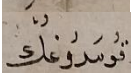 قوسدُوغُك